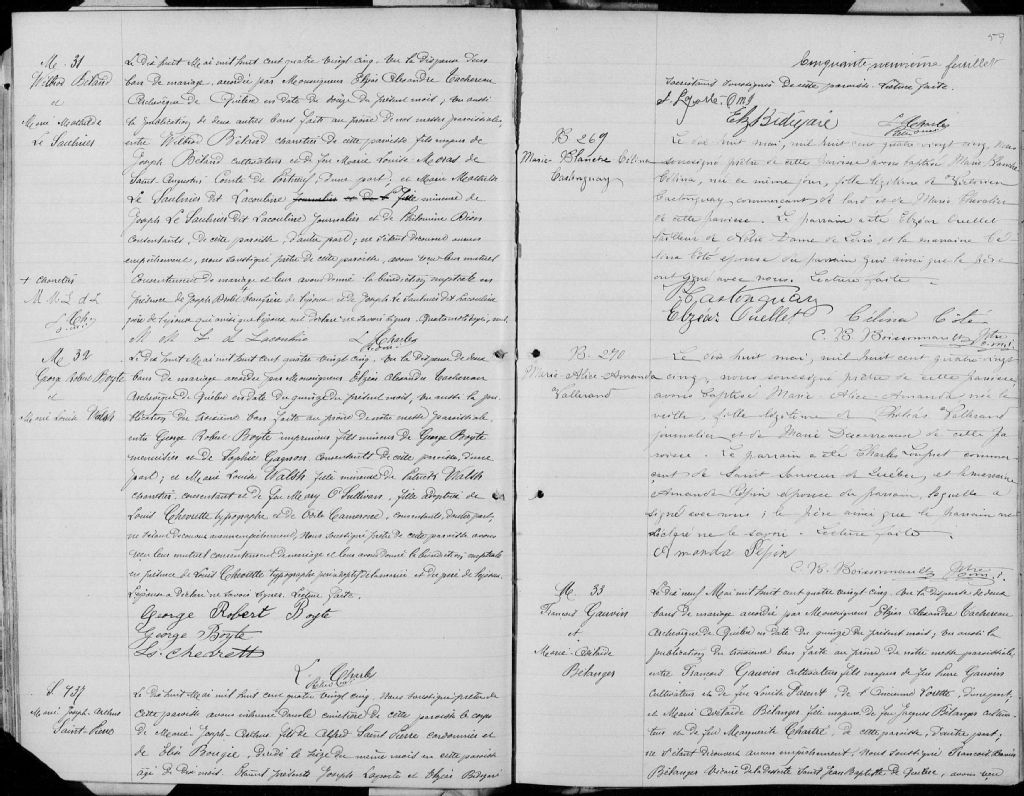 M. 31
Wilbrod Béland
et
Marie Mathilde
Le Saulnier
Le dix huit Mai mil huit cent quatre vingt cinq. Vu la dispense de deux
bans de mariage, accordée par Monseigneur Elzéar Alexandre Taschereau
Archevêque de Québec en date du du présent mois; vu aussi
la publication de bans faite au prône de nos messes paroissiales,
entre Wilbrod Béland charretier de cette paroisse fils majeur de
Joseph Béland cultivateur et de feu Marie Louise
Saint Augustin Comté de Portneuf, d'une part; et Marie Mathilde
Le Saulnier dit Lacouline journalier et de fille mineure de
Joseph Le Saulnier dit Lacouline journalier et de Philomène Dion
consentants, de cette paroisse, d'autre part; ne s'étant découvert aucun
empêchement, nous soussigné prêtre de cette paroisse, avons reçu leur mutuel
consentement de mariage et leur avons donné la bénédiction nuptiale en
présence de Joseph de l'époux et de Joseph Le Saulnier dit Lacouline
père de l'épouse qui ainsi que l'époux ont déclaré ne savoir signer.
+ charretier
M. M. L. d. L
M. 32
George Robert Boyte
et
Marie Louise Walsh
Le dix huit Mai mil huit cent quatre vingt cinq. Vu la dispense de deux
bans de mariage accordée par Monseigneur Elzéar Alexandre Taschereau
Archevêque de Québec en date du quinze du présent mois, vu aussi la pu-
blication du troisième ban faite au prône de notre messe paroissiale
entre George Robert Boyte imprimeur fils mineur de George Boyte
menuisier et de Sophie Gagnon consentants de cette paroisse, d'une
part; et Marie Louise Walsh fille mineure de Patrick Walsh
charretier consentant et de feu Mary O'Sullivan, fille adoptive de
Louis Chevrette typographe et de Cameron, consentants, d'autre part;
ne s'étant découvert aucun empêchement, Nous soussigné prêtre de cette paroisse avons
reçu leur mutuel consentement de mariage et leur avons donné la bénédiction nuptiale
en présence de Louis Chevrette typographe père adoptif de la mariée et du père de l'époux.
L'épouse a déclaré ne savoir signer. Lecture faite.
George Robert Boyte
George Boyte
Ls. Chevrett
S. 737
Marie Joseph Arthur
Saint Pierre
Le dix huit Mai mil huit cent quatre vingt cinq, Nous soussigné prêtre de
cette paroisse avons inhumé dans le cimetière de cette paroisse le corps
de Marie Joseph Arthur fils de Alfred Saint Pierre cordonnier et
de Elise Bougie, décédé le seize du même mois en cette paroisse
âgé de dix mois. Etaient présents Joseph Laporte et Elzéar Bidégaré
59
Cinquante-neuvième feuillet
soussignés de cette paroisse. Lecture faite.
J. Laporte O.m.I
Elz Bidégaré
B 269
Marie Blanche Célina
Castonguay
Le dix huit mai, mil huit cent quatre vingt cinq, nous
soussigné prêtre de cette paroisse avons baptisé Marie Blanche
Célina, née ce même jour, fille légitime de Victorien
Castonguay, commerçant de lard et de Marie Chevalier
de cette paroisse. Le parrain a été Elzéar Ouellet
tailleur de Notre Dame de Lévis et la marraine Cé-
lina Côté épouse du parrain qui ainsi que le père
ont signé avec nous. Lecture faite
V Castonguay
Elzéar Ouellet Célina Côté
C. B. Boissonnault Ptre
O.m.I.
B. 270
Marie-Alice-Amanda
Vallerand
Le dix huit mai, mil huit cent quatre vingt
cinq, nous soussigné prêtre de cette paroisse,
avons baptisé Marie-Alice-Amanda née la
veille, fille légitime de Vallerand
journalier et de Marie de cette pa-
roisse. Le parrain a été Charles commer-
çant de Saint Sauveur de Québec, et la marraine
Amanda Pépin épouse du parrain, laquelle a
signé avec nous; le père ainsi que le parrain ne
déclaré ne le savoir. Lecture faite
Amanda Pépin
C. B. Boissonnault Ptre
O.m.I.
M. 33
Francois Gauvin
et
Marie-
Bélanger
Le dix neuf Mai mil huit cent quatre vingt cinq. Vu la dispense de deux
bans de mariage accordée par Monseigneur Elzéar Alexandre Taschereau
Archevêque de Québec en date du quinze du présent mois; vu aussi la
publication du troisième ban faite au prône de notre messe paroissiale,
entre Francois Gauvin cultivateur fils majeur de feu Pierre Gauvin
cultivateur et de feu Louise Parent, de l'Ancienne Lorette, d'une part;
et Marie Bélanger fille majeure de feu Jacques Bélanger
et de feu Marguerite Chartré, de cette paroisse, d'autre part;
ne s'étant découvert aucun empêchement. Nous soussigné Francois
Bélanger Vicaire de la desserte Saint Jean Baptiste de Québec, avons reçu